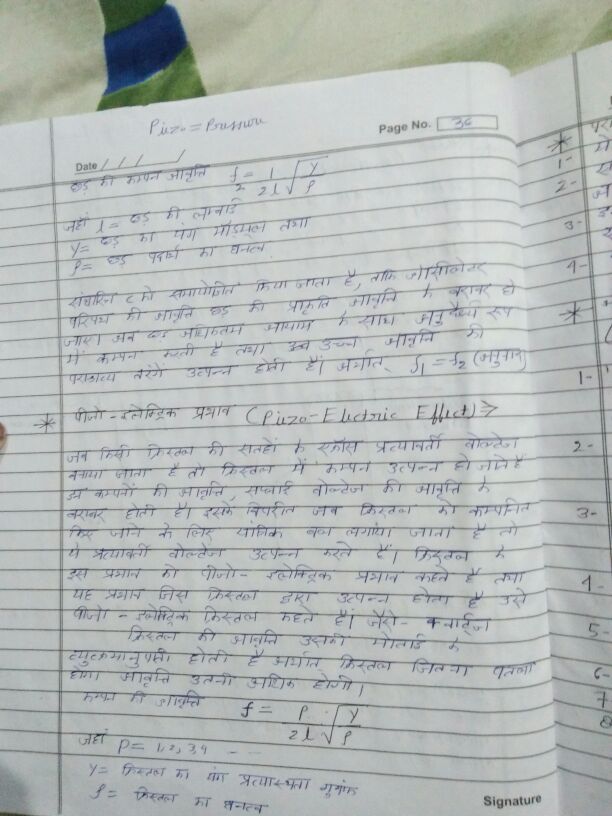 Piezo = Pressure
Page No. 36
Date / / /
छड़ की कम्पन आवृत्ति f₂ = 1/2l √Y/ρ
जहाँ l = छड़ की लम्बाई
Y = छड़ का यंग मॉडुलस तथा
ρ = छड़ पदार्थ का घनत्व
संधारित्र C को समायोजित किया जाता है, ताकि ऑसीलेटर
परिपथ की आवृत्ति छड़ की प्राकृतिक आवृत्ति के बराबर हो
जाए। अब छड़ अधिकतम आयाम के साथ अनुदैर्ध्य रूप
में कम्पन करती है तथा उच्च आवृत्ति की
पराश्रव्य तरंगे उत्पन्न होती है। अर्थात् f₁ = f₂ (अनुनाद)
* पीजो-इलेक्ट्रिक प्रभाव (Piezo-Electric Effect) ⇒
जब किसी क्रिस्टल की सतहों के एक्रॉस प्रत्यावर्ती वोल्टेज
लगाया जाता है तो क्रिस्टल में कम्पन उत्पन्न हो जाते हैं
इन कम्पनों की आवृत्ति, सप्लाई वोल्टेज की आवृत्ति के
बराबर होती है। इसके विपरीत जब क्रिस्टल को कम्पनित
किए जाने के लिए यांत्रिक बल लगाया जाता है तो
ये प्रत्यावर्ती वोल्टेज उत्पन्न करते हैं। क्रिस्टल के
इस प्रभाव को पीजो-इलेक्ट्रिक प्रभाव कहते है तथा
यह प्रभाव जिस क्रिस्टल द्वारा उत्पन्न होता है उसे
पीजो-इलेक्ट्रिक क्रिस्टल कहते हैं। जैसे- क्वार्ट्ज
क्रिस्टल की आवृत्ति उसकी मोटाई के
व्युत्क्रमानुपाती होती है अर्थात् क्रिस्टल जितना पतला
होगा आवृत्ति उतनी अधिक होगी।
कम्पन की आवृत्ति f = P/2l √Y/ρ
जहाँ P = 1, 2, 3, 4 - - -
Y = क्रिस्टल का यंग प्रत्यास्थता गुणांक
ρ = क्रिस्टल का घनत्व
Signature
*
1-
2-
3-
4-
*
1-
2-
3-
4-
5-
6-
7
8